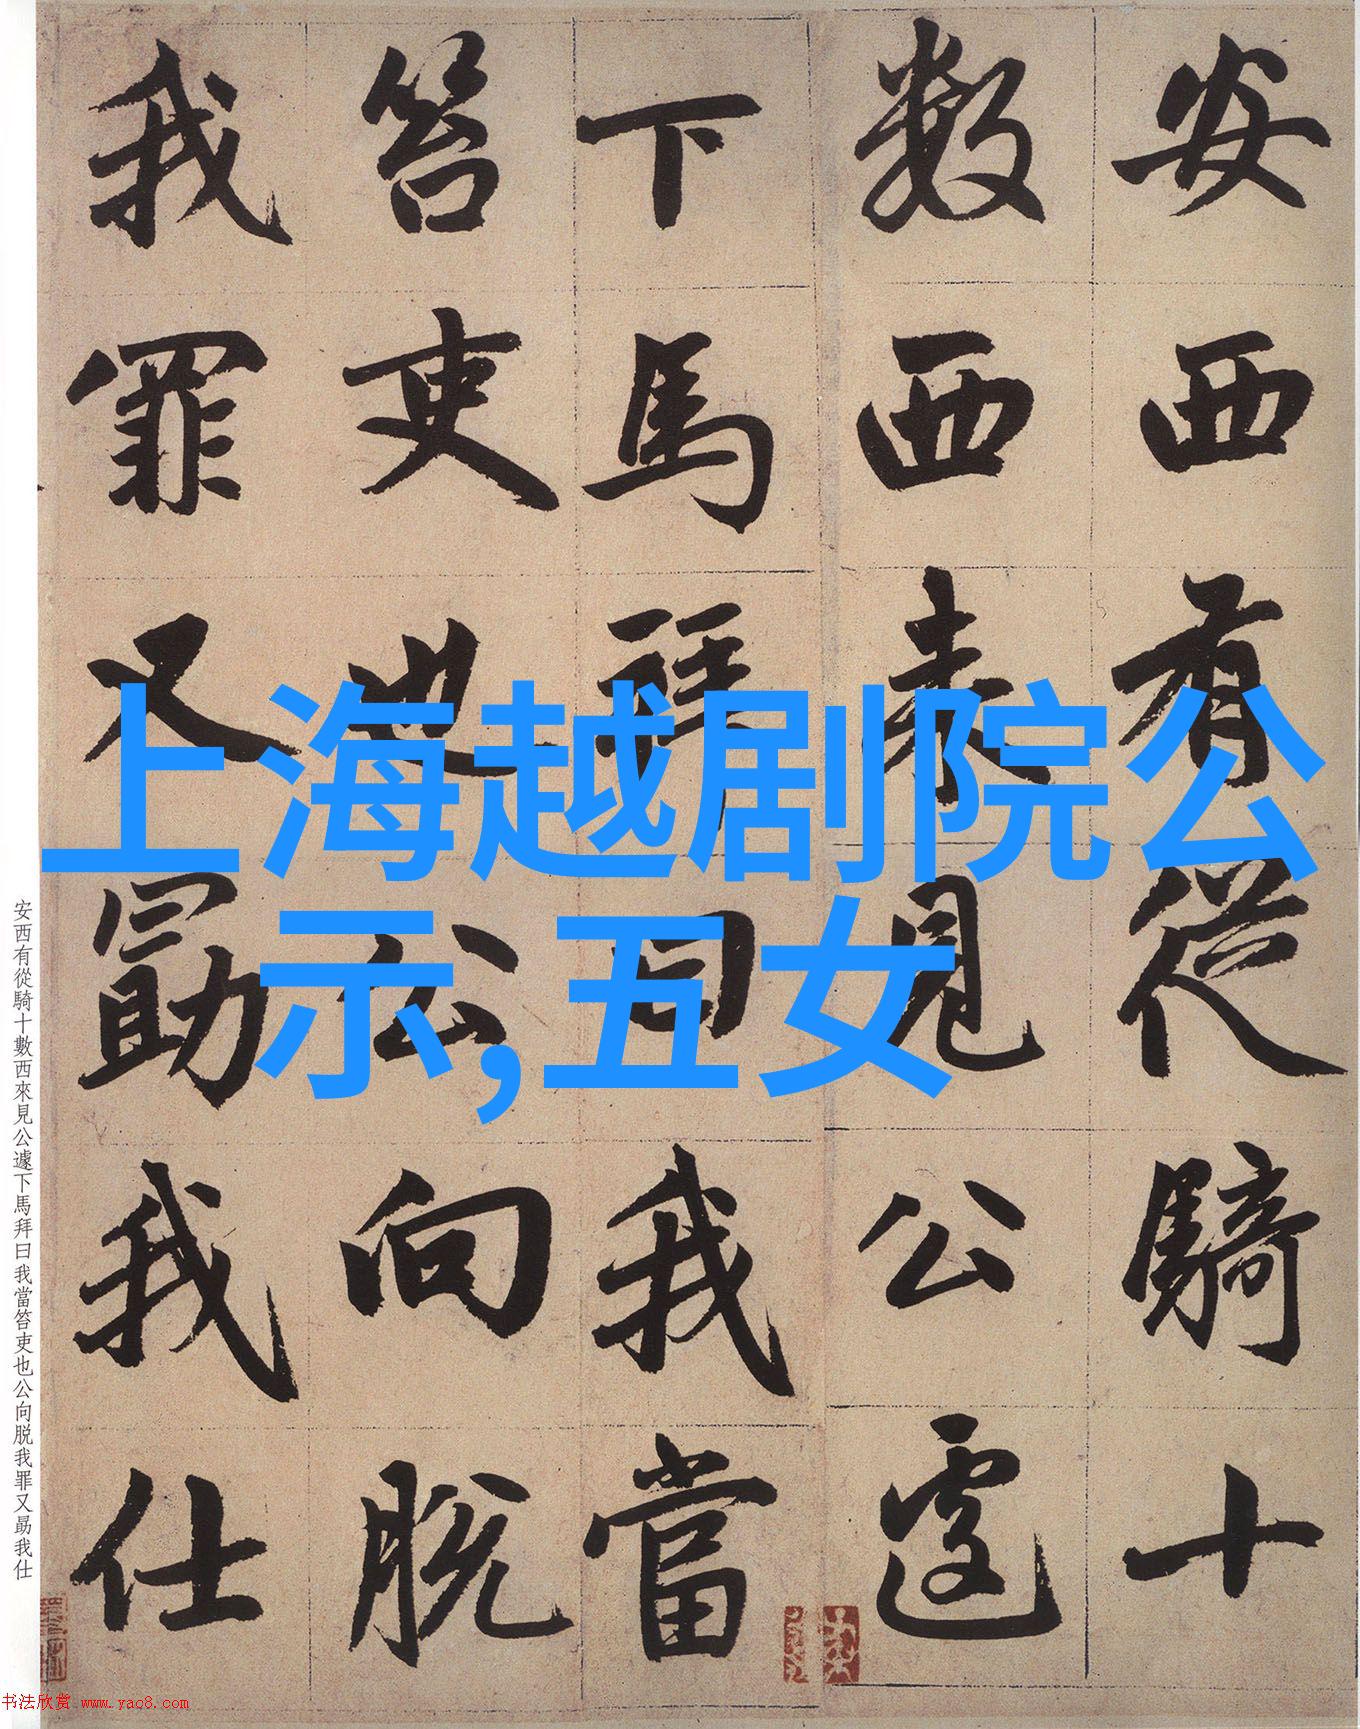 安西有從騎十
數西來見公遽
下馬拜曰我當
笞吏也公向脱
我罪又勗我仕
上海越剧院公
示,五女
安西有從騎十數西來見公遽下馬拜曰我當笞吏也公向脱我罪又勗我仕
书法欣赏 www.yac8.com